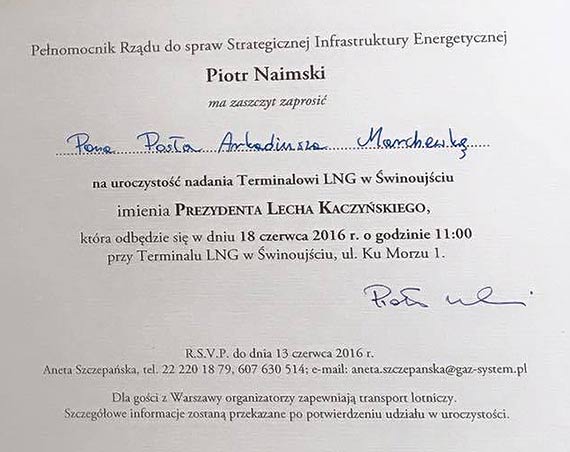 Pełnomocnik Rządu do spraw Strategicznej Infrastruktury Energetycznej
Piotr Naimski
ma zaszczyt zaprosić
Pana Posła Arkadiusza Marchewkę
na uroczystość nadania Terminalowi LNG w Świnoujściu
imienia PREZYDENTA LECHA KACZYŃSKIEGO,
która odbędzie się w dniu 18 czerwca 2016 r. o godzinie 11:00
przy Terminalu LNG w Świnoujściu, ul. Ku Morzu 1.
Piotr
R.S.V.P. do dnia 13 czerwca 2016 r.
Aneta Szczepańska, tel. 22 220 18 79, 607 630 514; e-mail: aneta.szczepanska@gaz-system.pl
Dla gości z Warszawy organizatorzy zapewniają transport lotniczy.
Szczegółowe informacje zostaną przekazane po potwierdzeniu udziału w uroczystości.